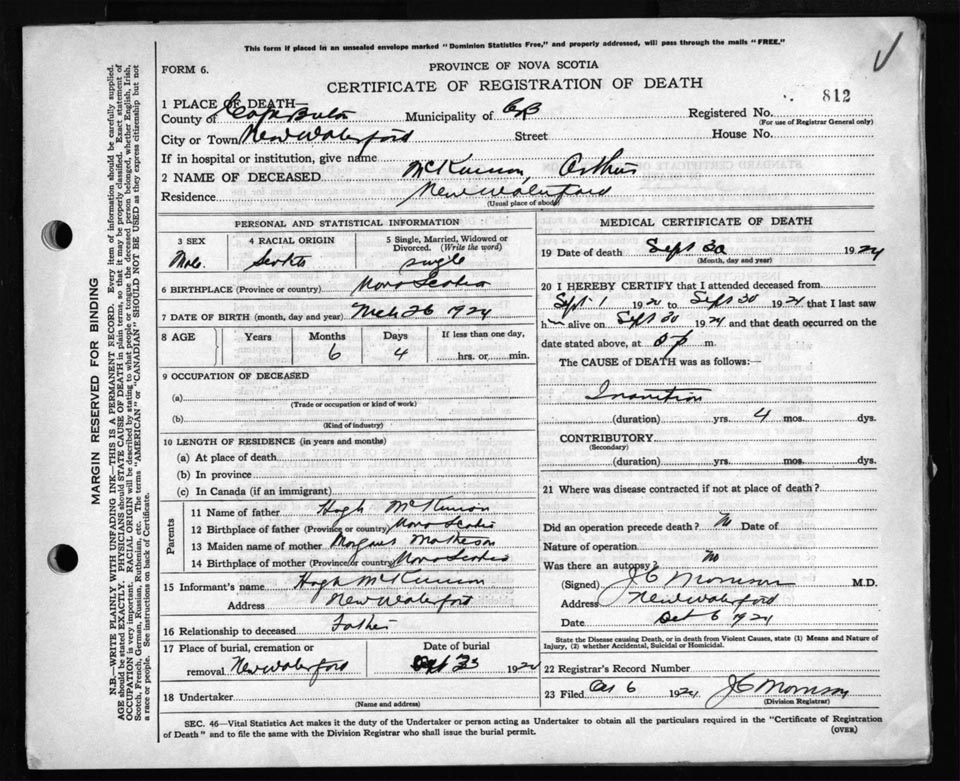 This form if placed in an unsealed envelope marked "Dominion Statistics Free," and properly addressed, will pass through the mails "FREE."
FORM 6.
PROVINCE OF NOVA SCOTIA
CERTIFICATE OF REGISTRATION OF DEATH
812
1 PLACE OF DEATH—
County of Cape Breton Municipality of CB Registered No.
(For use of Registrar General only)
City or Town New Waterford Street House No.
If in hospital or institution, give name
2 NAME OF DECEASED McKinnon, Arthur
Residence New Waterford
(Usual place of abode)
PERSONAL AND STATISTICAL INFORMATION
3 SEX 4 RACIAL ORIGIN 5 Single, Married, Widowed or Divorced. (Write the word)
Male Scotch single
6 BIRTHPLACE (Province or country) Nova Scotia
7 DATE OF BIRTH (month, day and year) Mch 26 1924
8 AGE Years Months Days If less than one day,
6 4 hrs. or min.
9 OCCUPATION OF DECEASED
(a)
(Trade or occupation or kind of work)
(b)
(Kind of industry)
10 LENGTH OF RESIDENCE (in years and months)
(a) At place of death
(b) In province
(c) In Canada (if an immigrant)
Parents
11 Name of father Hugh McKinnon
12 Birthplace of father (Province or country) Nova Scotia
13 Maiden name of mother Matheson
14 Birthplace of mother (Province or country) Nova Scotia
15 Informant's name Hugh McKinnon
Address New Waterford
16 Relationship to deceased father
17 Place of burial, cremation or Date of burial
removal New Waterford 1924
18 Undertaker
(Name and address)
MEDICAL CERTIFICATE OF DEATH
19 Date of death Sept 30 1924
(Month, day and year)
20 I HEREBY CERTIFY that I attended deceased from
Sept 1 1924 to Sept 30 1924 that I last saw
h im alive on Sept 30 1924 and that death occurred on
date stated above, at p m.
The CAUSE of DEATH was as follows:—
Inanition
(duration) yrs. 4 mos. dys.
CONTRIBUTORY
(Secondary)
(duration) yrs. mos. dys.
21 Where was disease contracted if not at place of death?
Did an operation precede death? No Date of
Nature of operation
Was there an autopsy? No
(Signed) J C Morrison M.D.
Address New Waterford
Date Oct 6 1924
State the Disease causing Death, or in death from Violent Causes, state (1) Means and Nature of
Injury, (2) whether Accidental, Suicidal or Homicidal.
22 Registrar's Record Number
23 Filed Oct 6 1924 J C Morrison
(Division Registrar)
SEC. 46—Vital Statistics Act makes it the duty of the Undertaker or person acting as Undertaker to obtain all the particulars required in the "Certificate of Registration
of Death" and to file the same with the Division Registrar who shall issue the burial permit.
(OVER)
MARGIN RESERVED FOR BINDING
N.B.—WRITE PLAINLY WITH UNFADING INK—THIS IS A PERMANENT RECORD. Every item of information should be carefully supplied.
AGE should be stated EXACTLY. PHYSICIANS should STATE CAUSE OF DEATH in plain terms, so that it may be properly classified. Exact statement of
OCCUPATION is very important. RACIAL ORIGIN will be described by stating to what people or tongue the deceased person belonged, whether English, Irish,
Scotch, French, German, Russian, Ruthenian, etc. The terms "AMERICAN" or "CANADIAN" SHOULD NOT BE USED as they express citizenship but not
a race or people. See instructions on back of Certificate.